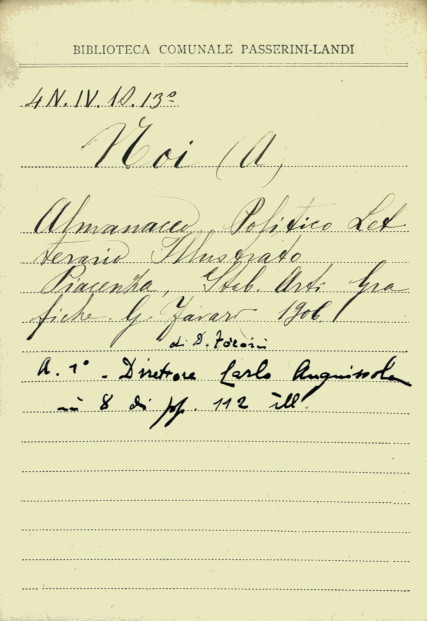 BIBLIOTECA COMUNALE PASSERINI-LANDI
4N.IV.10.13º
Noi (A)
Almanacco Politico Let
terario Illustrato
Piacenza, Stab. Arti Gra
fiche. G. Favari 1906.
di D. Foroni
A. 1º - Direttore Carlo Anguissola
in 8 di pp. 112 ill.